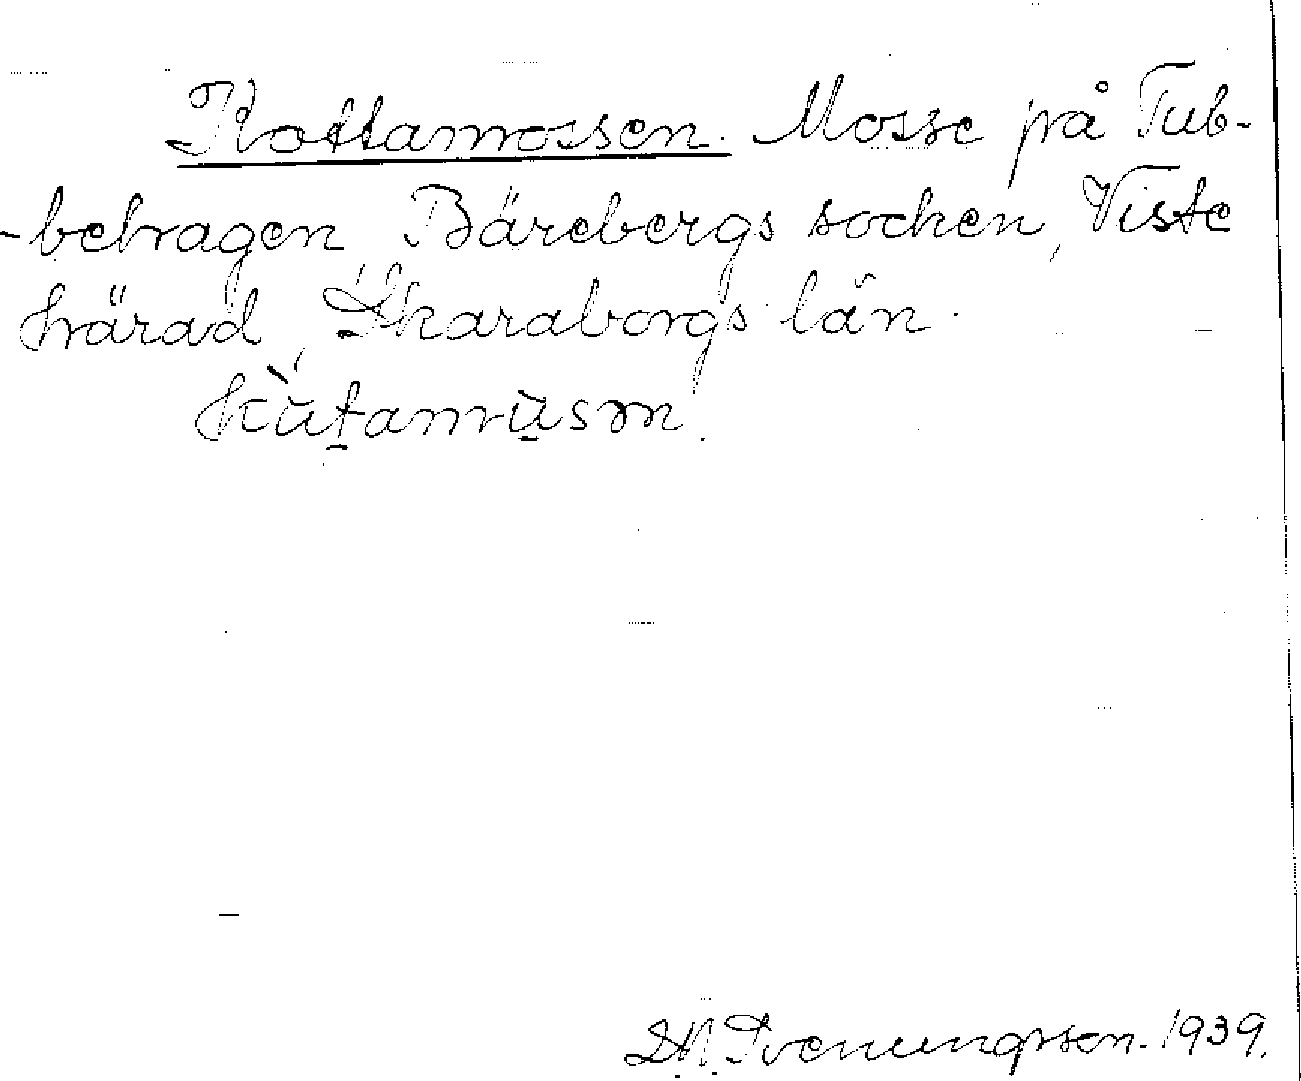 Kottamossen. Mosse på Tub-
-betragen, Bärebergs socken, Viste
härad, Skaraborgs län.
D.N. Svenungsson. 1939.